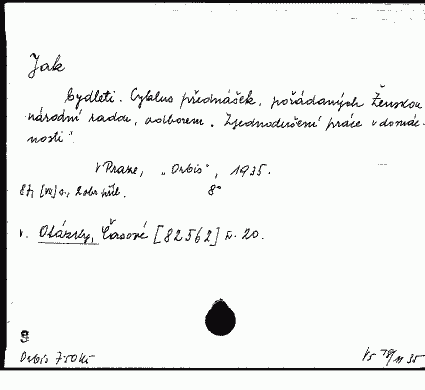 Jak
bydleti. Cyklus přednášek, pořádaných Ženskou
národní radou, odborem „Zjednodušení práce v domác-
nosti“.
V Praze, „Orbis“, 1935.
87, [VII] s., 2 obr. příl. 8°
v. Otázky, Časové [82562] č. 20.
8
Orbis 7.50 Kč